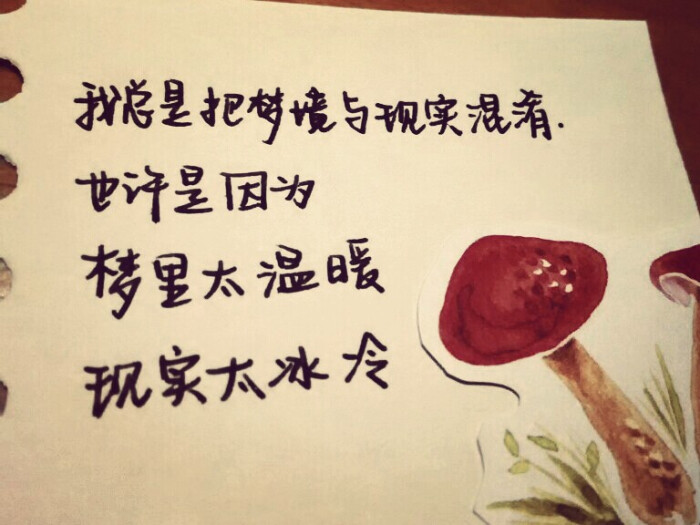 我总是把梦境与现实混淆.
也许是因为
梦里太温暖
现实太冰冷